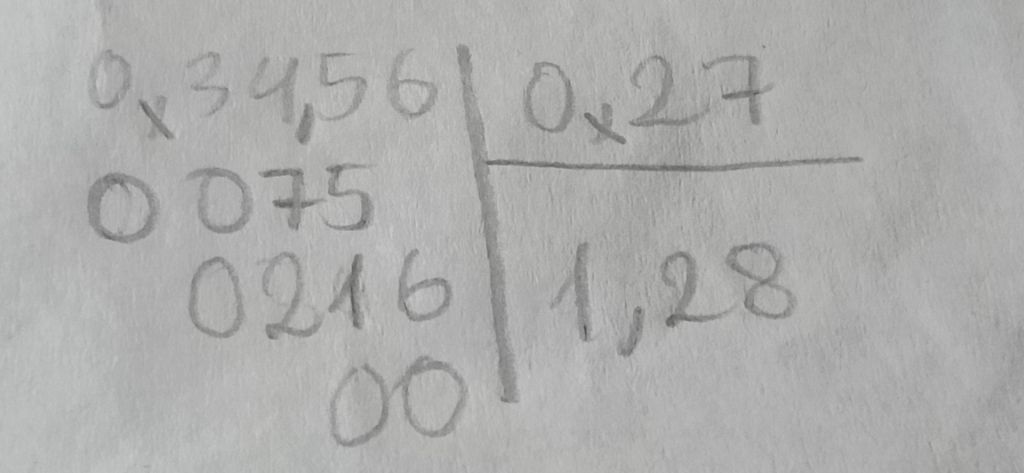 0,34,56 0,27
0075
0216 1,28
00